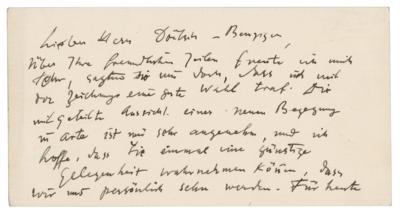 Lieber Herr
über Ihre freundlichen Zeilen freute ich mich
sehr, sagten Sie mir doch, dass ich mit
der Zeichnung eine gute Wahl traf. Die
mitgeteilte Aussicht einer neuen Begegnung
in arte ist mir sehr angenehm, und ich
hoffe, dass Sie einmal eine günstige
Gelegenheit wahrnehmen können, dass
wir uns persönlich sehn werden. Für heute